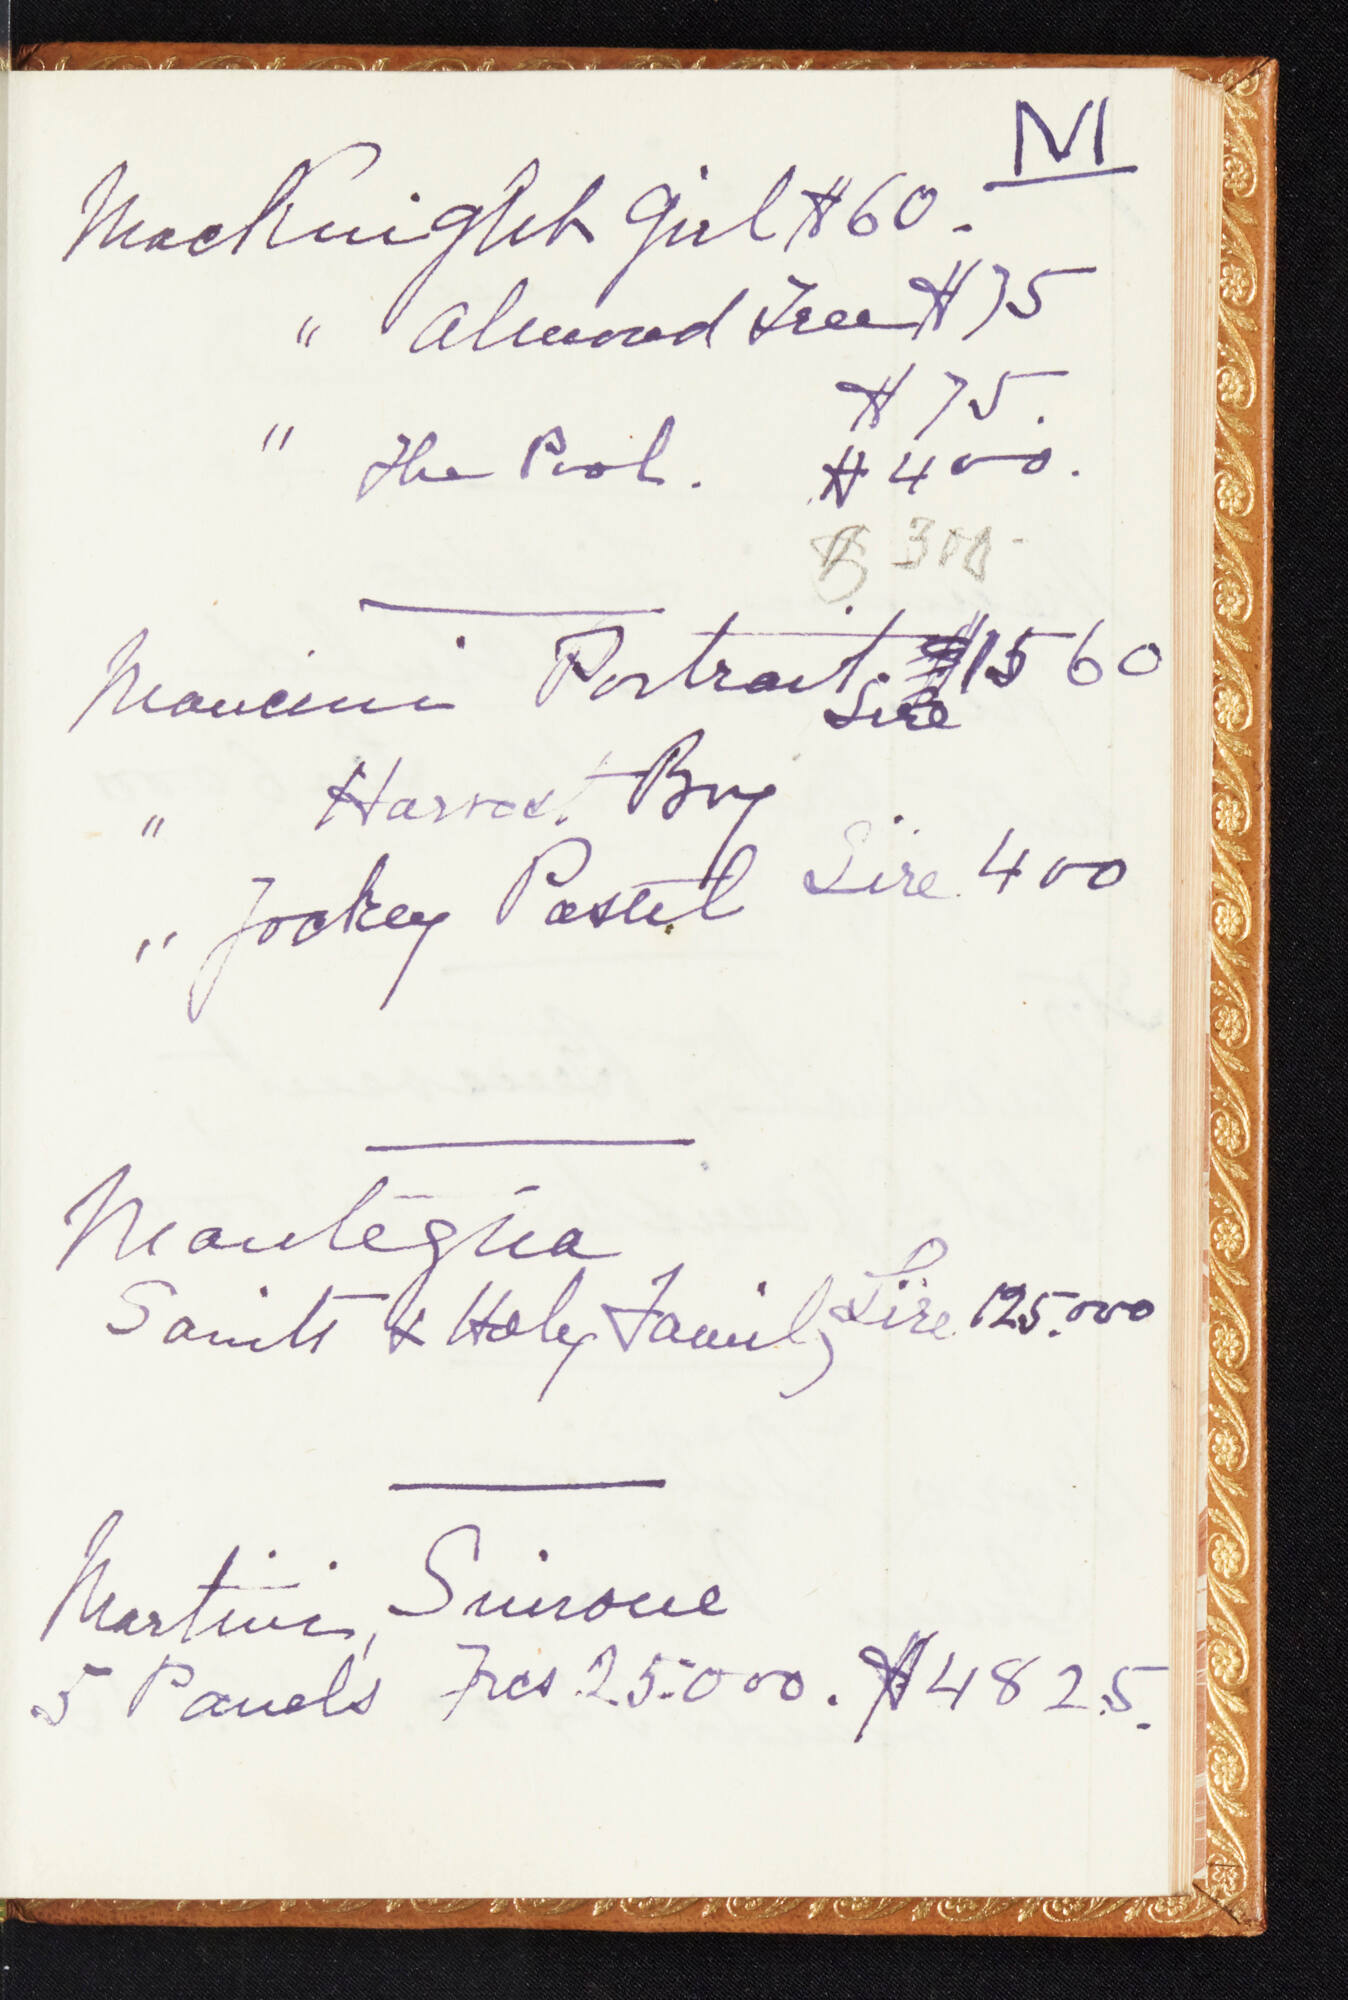 M
MacKnight Girl $60.
" Almond Tree $75
$75.
" The Pool. $400.
$ 300-
Mancini Portrait $1560
Lire
" Harvest Boy
" Jockey Pastel Lire 400
Mantegna
Saints & Holy Family Lire 125.000
Martini, Simone
5 Panels Frcs 25.000. $4825.